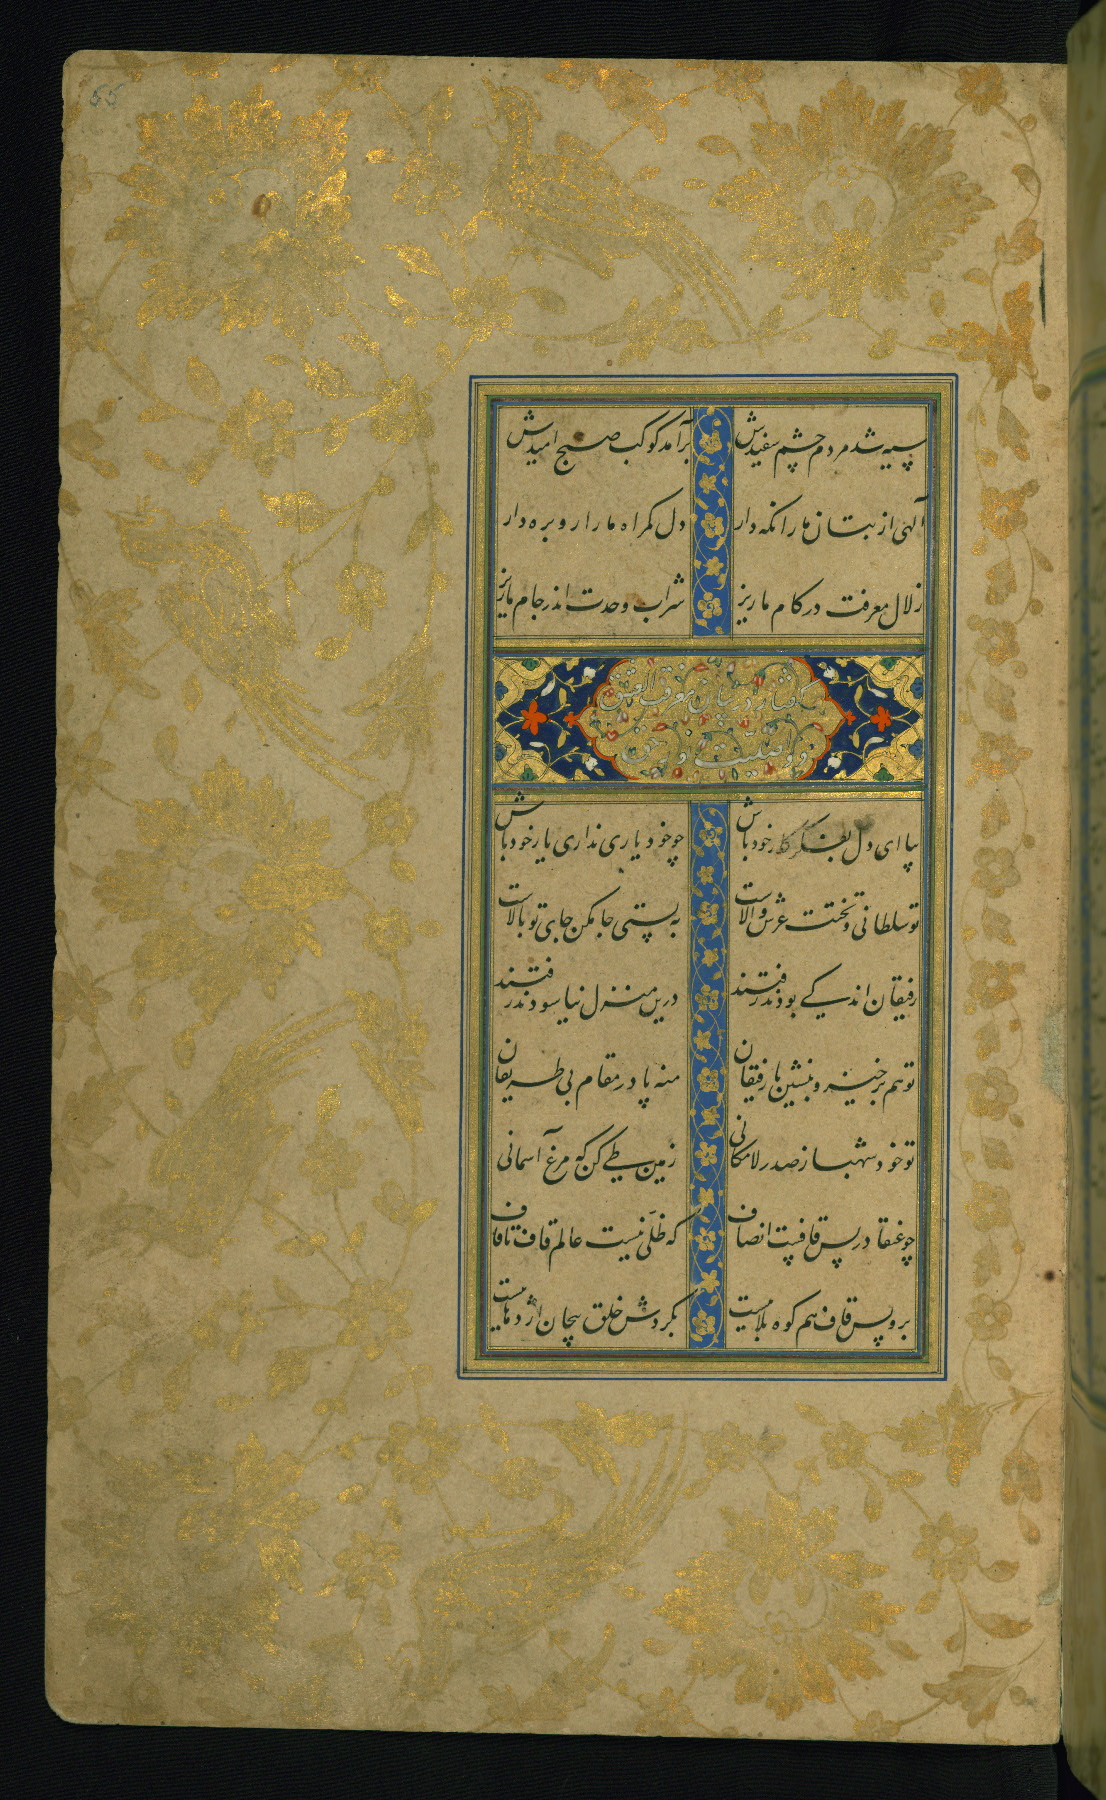 سیه شد مردم چشم سفیدش برآمد کوکب صبح امیدش
آلهی از بتان ما را نکه دار دل کمراه ما را رو بره دار
زلال معرفت در کام ما ریز شراب وحدت اندر جام ما ریز
کفتار در بیان معرفت العشق
بیا ای دل بفکر کار خود باش چو خود یاری نداری یار خود باش
تو سلطانی و تختت عرش والاست به پستی جا مکن جای تو بالاست
رفیقان اندکی بودند رفتند درین منزل نیاسودند رفتند
تو هم برخیز و بنشین با رفیقان منه پا در مقام بی طریقان
تو خود شهباز صدر لامکانی زمین طی کن که مرغ آسمانی
چو عنقا در پس قافیت انصاف که ظلی نیست عالم قاف تا قاف
برو پس قاف هم کوه بلاییست بکردش خلق پیچان اژدهاییست